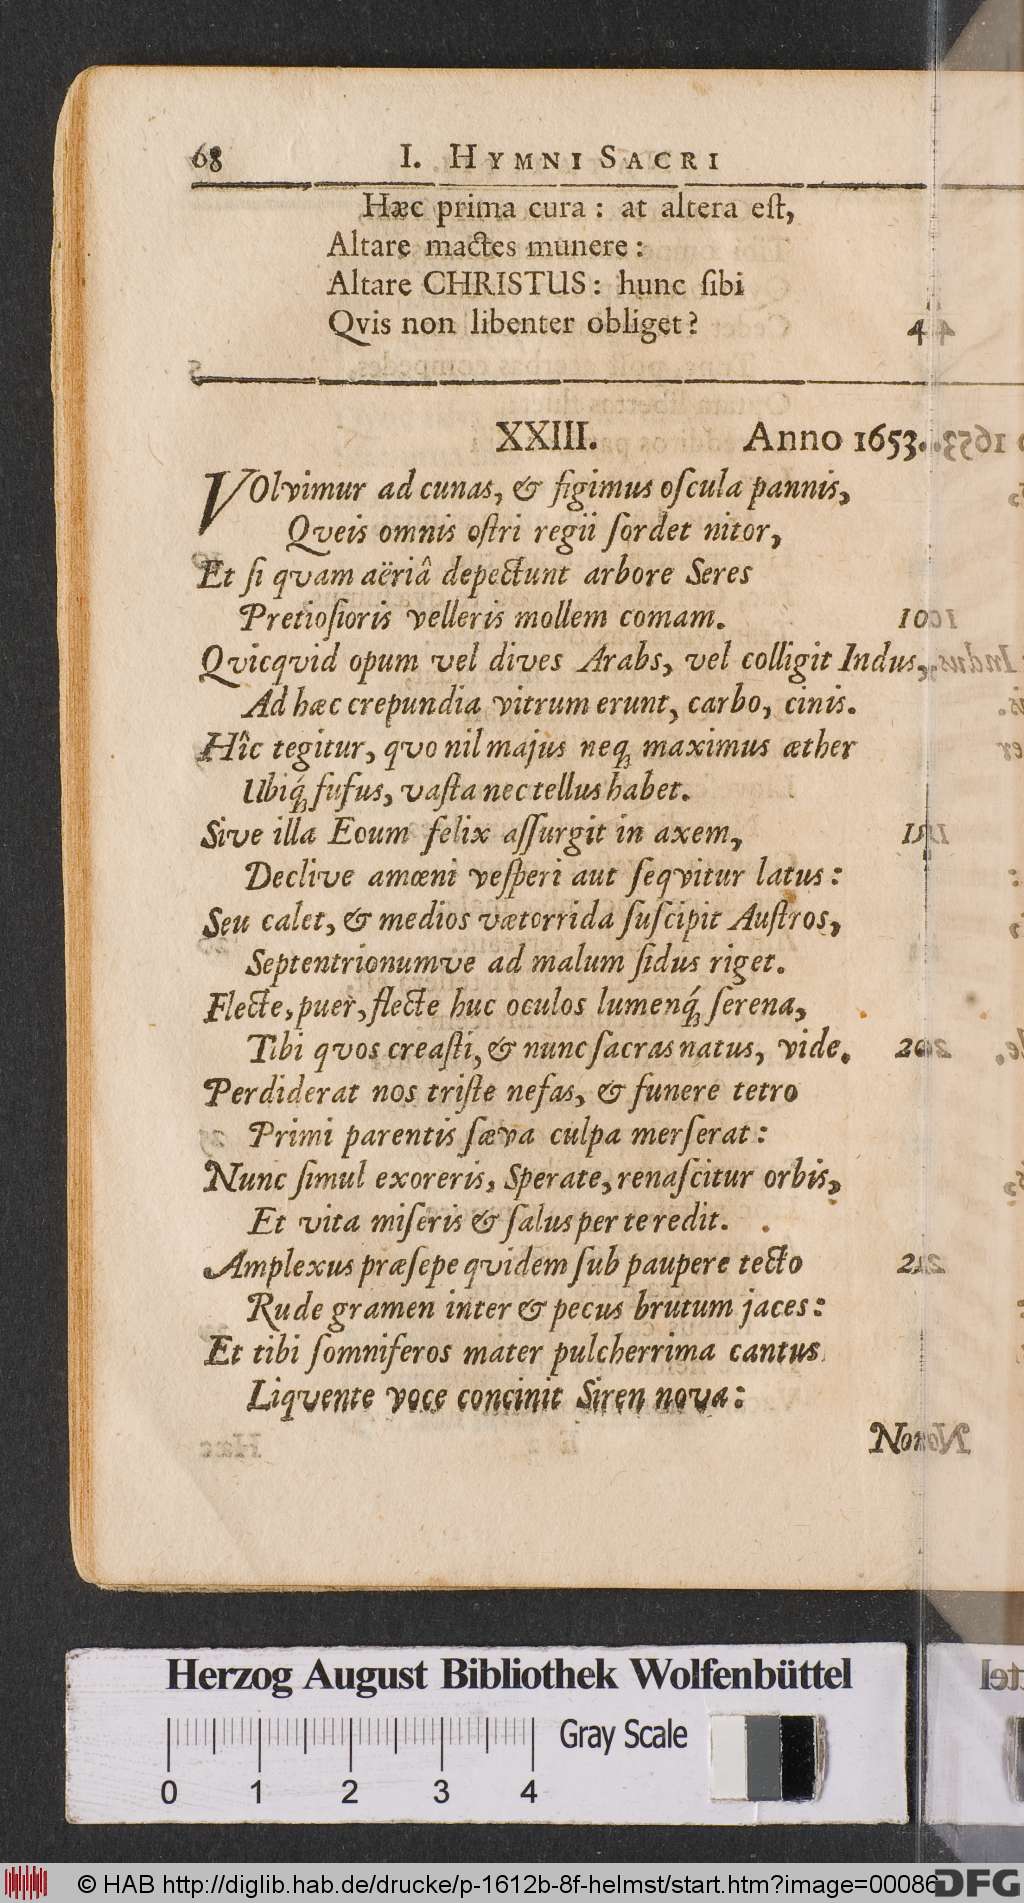 68 I. HYMNI SACRI
Hæc prima cura : at altera eſt,
Altare mactes munere :
Altare CHRISTUS : hunc ſibi
Qvis non libenter obliget ?
XXIII. Anno 1653.
VOlvimur ad cunas, & figimus oſcula pannis,
Qveis omnis oſtri regii ſordet nitor,
Et ſi qvam aëriâ depectunt arbore Seres
Pretioſioris velleris mollem comam.
Qvicqvid opum vel dives Arabs, vel colligit Indus,
Ad hæc crepundia vitrum erunt, carbo, cinis.
Hîc tegitur, qvo nil majus neq; maximus æther
Ubiq́; fuſus, vaſta nec tellus habet.
Sive illa Eoum felix aſſurgit in axem,
Declive amœni veſperi aut ſeqvitur latus :
Seu calet, & medios væ torrida ſuſcipit Auſtros,
Septentrionumve ad malum ſidus riget.
Flecte, puer, flecte huc oculos lumenq́; ſerena,
Tibi qvos creaſti, & nunc ſacras natus, vide. 20
Perdiderat nos triſte nefas, & funere tetro
Primi parentis ſæva culpa merſerat :
Nunc ſimul exoreris, Sperate, renaſcitur orbis,
Et vita miſeris & ſalus per te redit.
Amplexus præſepe qvidem ſub paupere tecto
Rude gramen inter & pecus brutum jaces :
Et tibi ſomniferos mater pulcherrima cantus
Liqvente voce concinit Siren nova :
Non
Herzog August Bibliothek Wolfenbüttel
0 1 2 3 4 Gray Scale
© HAB http://diglib.hab.de/drucke/p-1612b-8f-helmst/start.htm?image=00086
DFG